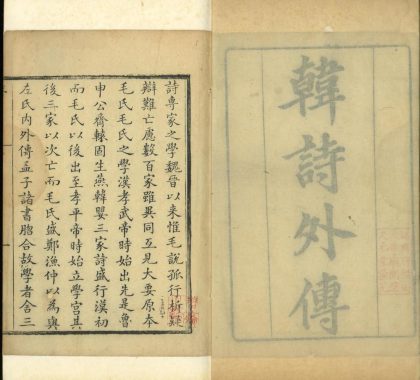 韓詩外傳
詩專家之學魏晉以來惟毛說孤行析疑
辯難亡慮數百家雖異同互見大要原本
毛氏毛氏之學漢孝武帝時始出先是魯
申公齊轅固生燕韓嬰三家詩盛行漢初
而毛氏以後出至孝平帝時始立學宮其
後三家以次亡而毛氏盛鄭漁仲以為與
左氏內外傳孟子諸書脗合故學者舍三